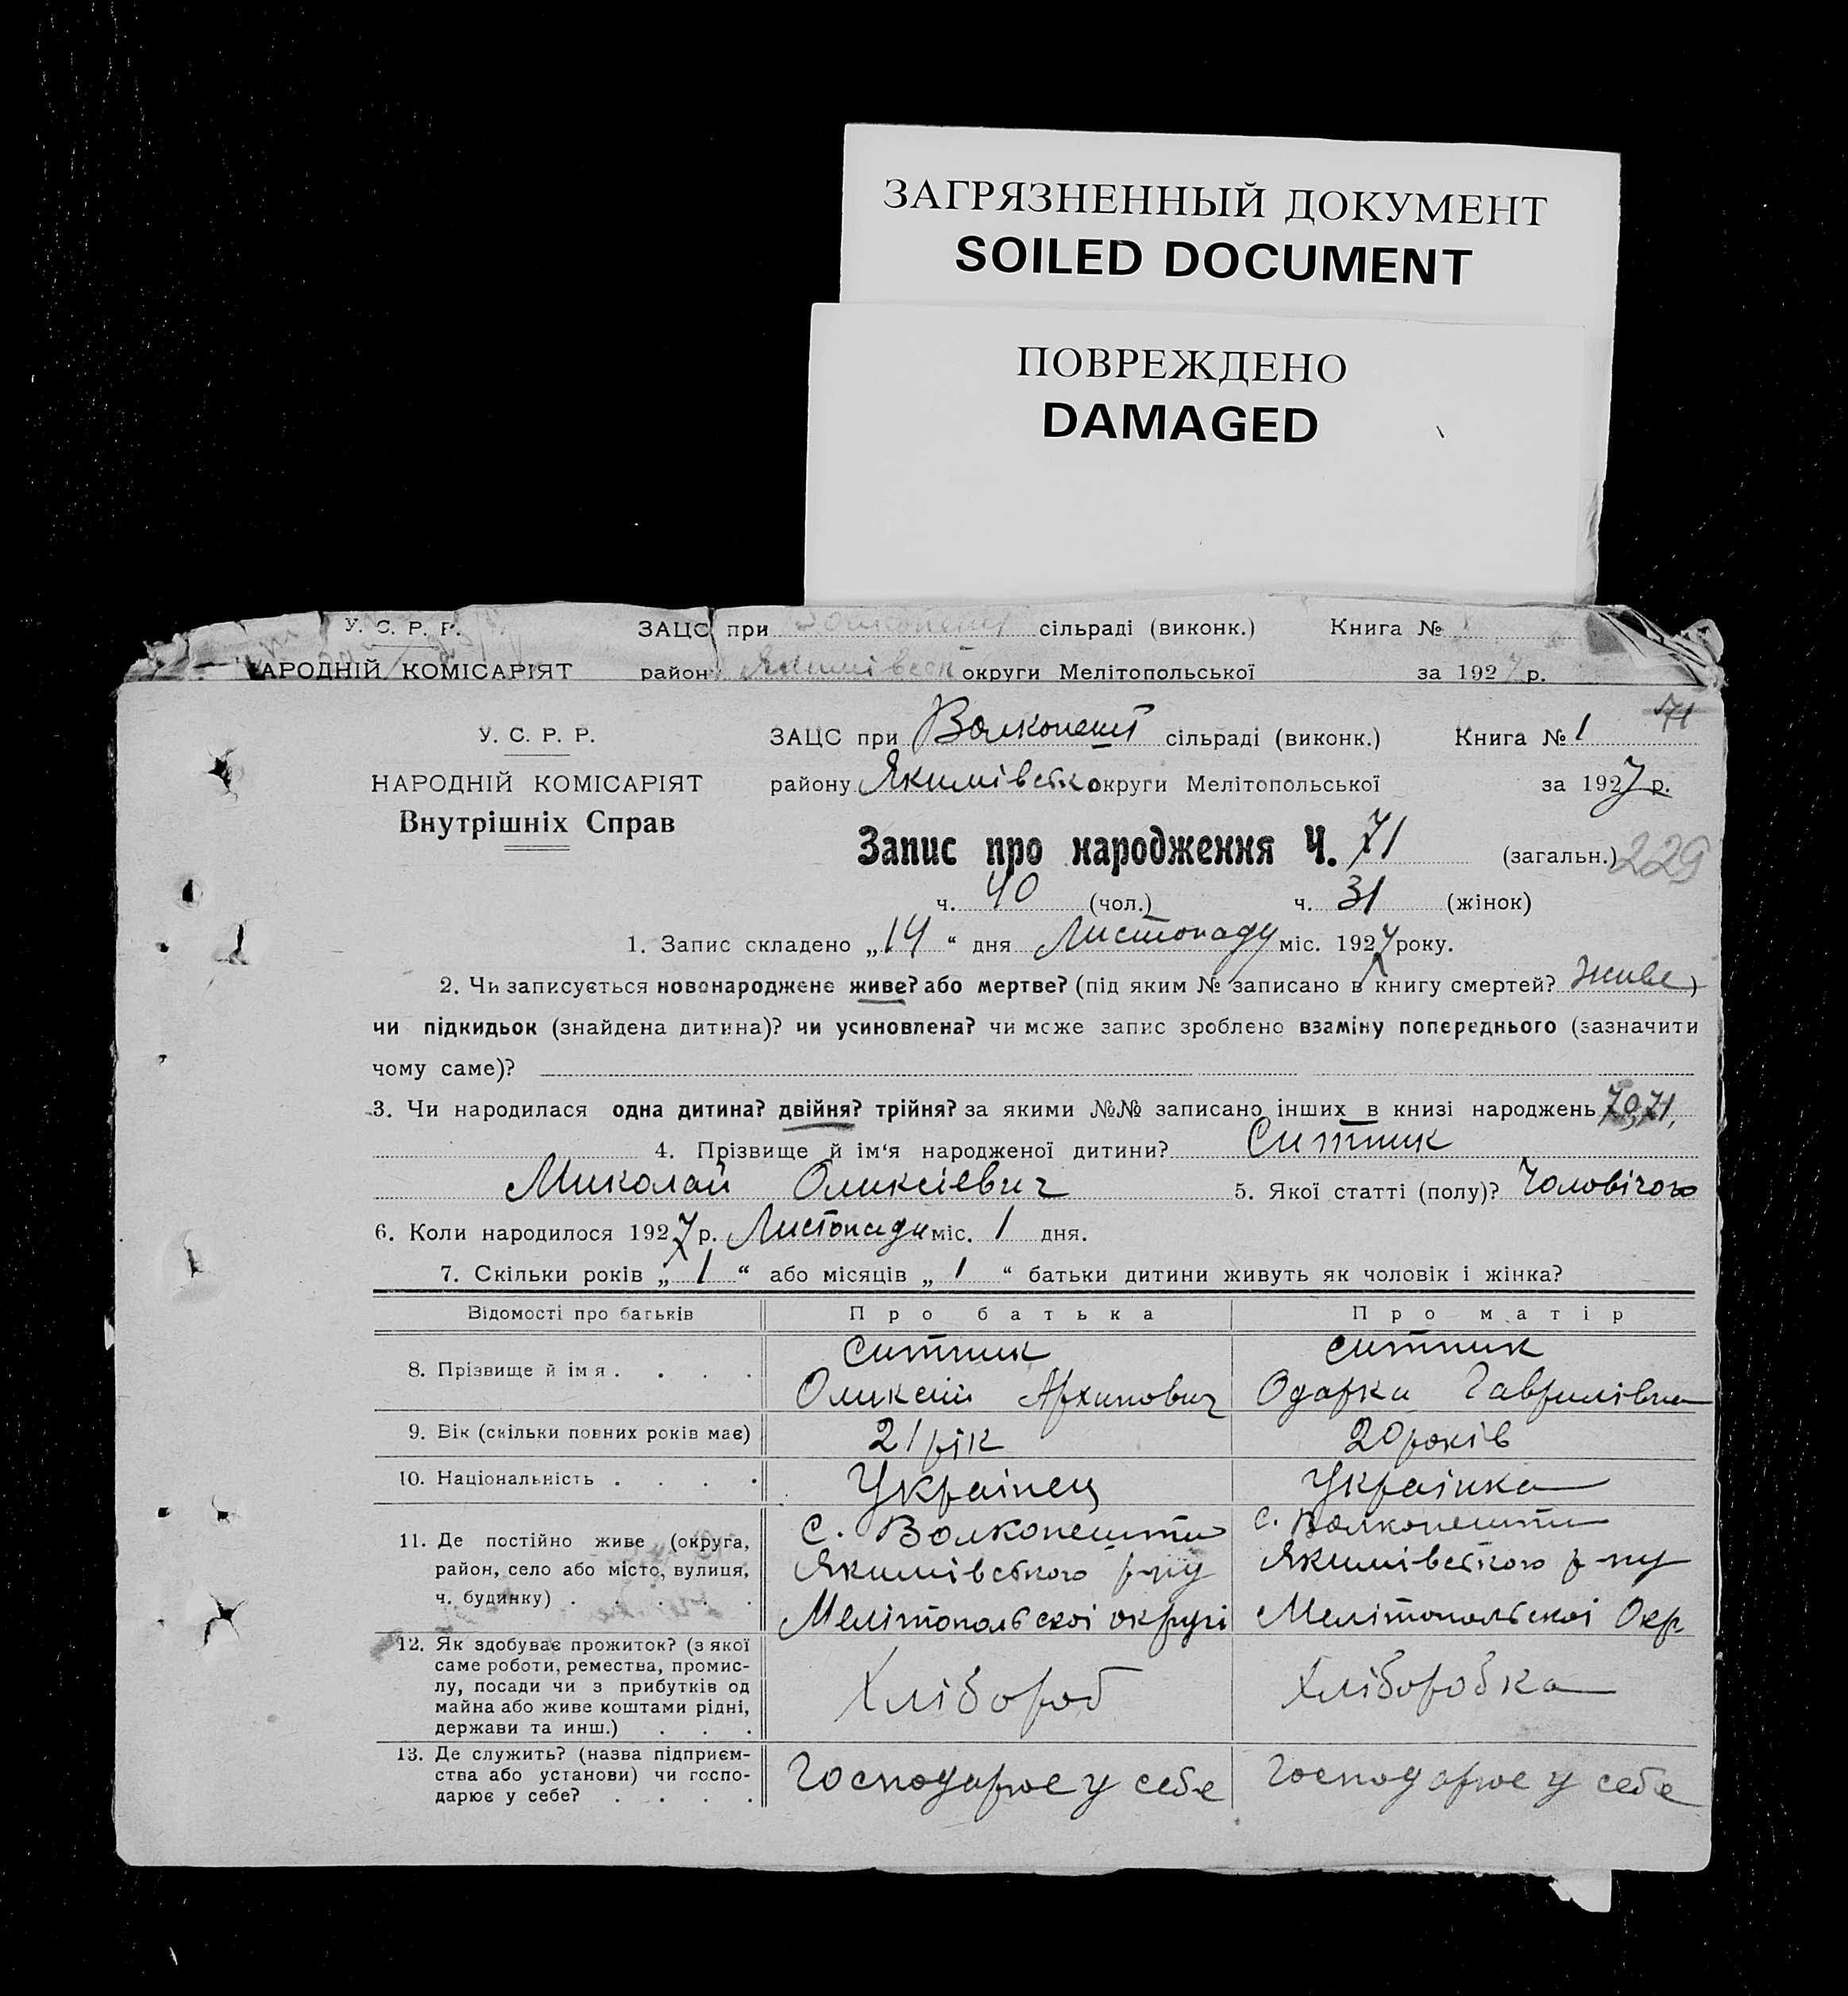 ЗАГРЯЗНЕННЫЙ ДОКУМЕНТ
SOILED DOCUMENT
ПОВРЕЖДЕНО
DAMAGED
У. С. Р. Р. ЗАЦС при сільраді (виконк.) Книга №
АРОДНІЙ КОМІСАРІЯТ район Якимівськ округи Мелітопольської за 1927 р.
71
У. С. Р. Р. ЗАЦС при Волконешт сільраді (виконк.) Книга № 1
НАРОДНІЙ КОМІСАРІЯТ району Якимівськ округи Мелітопольської за 1927 р.
Внутрішніх Справ
Запис про народження Ч. 71 (загальн.) 229
ч. 40 (чол.) ч. 31 (жінок)
1. Запис складено „14“ дня Листопаду міс. 1927 року.
2. Чи записується новонароджене живе? або мертве? (під яким № записано в книгу смертей? живе)
чи підкидьок (знайдена дитина)? чи усиновлена? чи може запис зроблено взаміну попереднього (зазначити
чому саме)?
3. Чи народилася одна дитина? двійня? трійня? за якими №№ записано інших в книзі народжень 70,71,
4. Прізвище й ім‘я народженої дитини? Ситник
Миколай Оликсіевич 5. Якої статті (полу)? Чоловічого
6. Коли народилося 1927 р. Листопада міс. 1 дня.
7. Скільки років „ 1 “ або місяців „ 1 “ батьки дитини живуть як чоловік і жінка?
Відомості про батьків Про батька Про матір
8. Прізвище й ім я . . . . Ситник Ситник
Оликсій Архипович Одарка Гаврилівна
9. Вік (скільки повних років має) 21 рік 20 років
10. Національність . . . . Украінец Украінка
11. Де постійно живе (округа, район, село або місто, вулиця, ч. будинку) . . . . .
с. Волконешти с. Волконешти
Якимівського р-ну Якимівського р-ну
Мелітопольскоі округі Мелітопольскоі Окр
12. Як здобуває прожиток? (з якої
саме роботи, ремества, промис-
лу, посади чи з прибутків од
майна або живе коштами рідні,
держави та инш.) . . .
Хлібороб Хліборобка
13. Де служить? (назва підприєм-
ства або установи) чи госпо-
дарює у себе? . . . .
Господарює у себе Господарює у себе